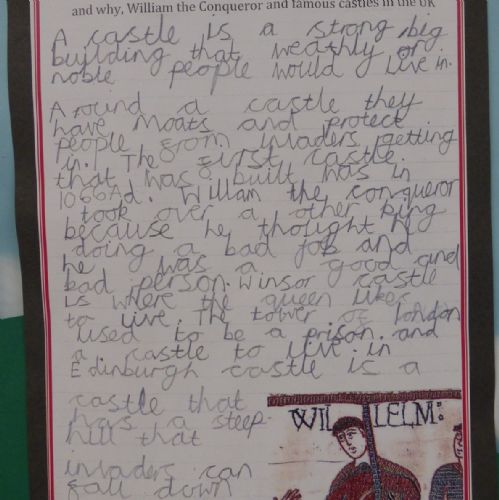 and why, William the Conqueror and famous castles in the UK
A castle is a strong big
building that weathly or
noble people would live in.
Around a castle they
have moats and protect
people from invaders getting
in. The first castle
that was built was in
1066Ad. William the conqueror
took over a other king
because he thought he
doing a bad job and
he was a good and
bad person. Winsor castle
is where the queen likes
to live. The tower of london
used to be a prison. and
a castle to live in
Edinburgh castle is a
castle that
has a steep
hill that
invaders can
fall down
WIL LELM: